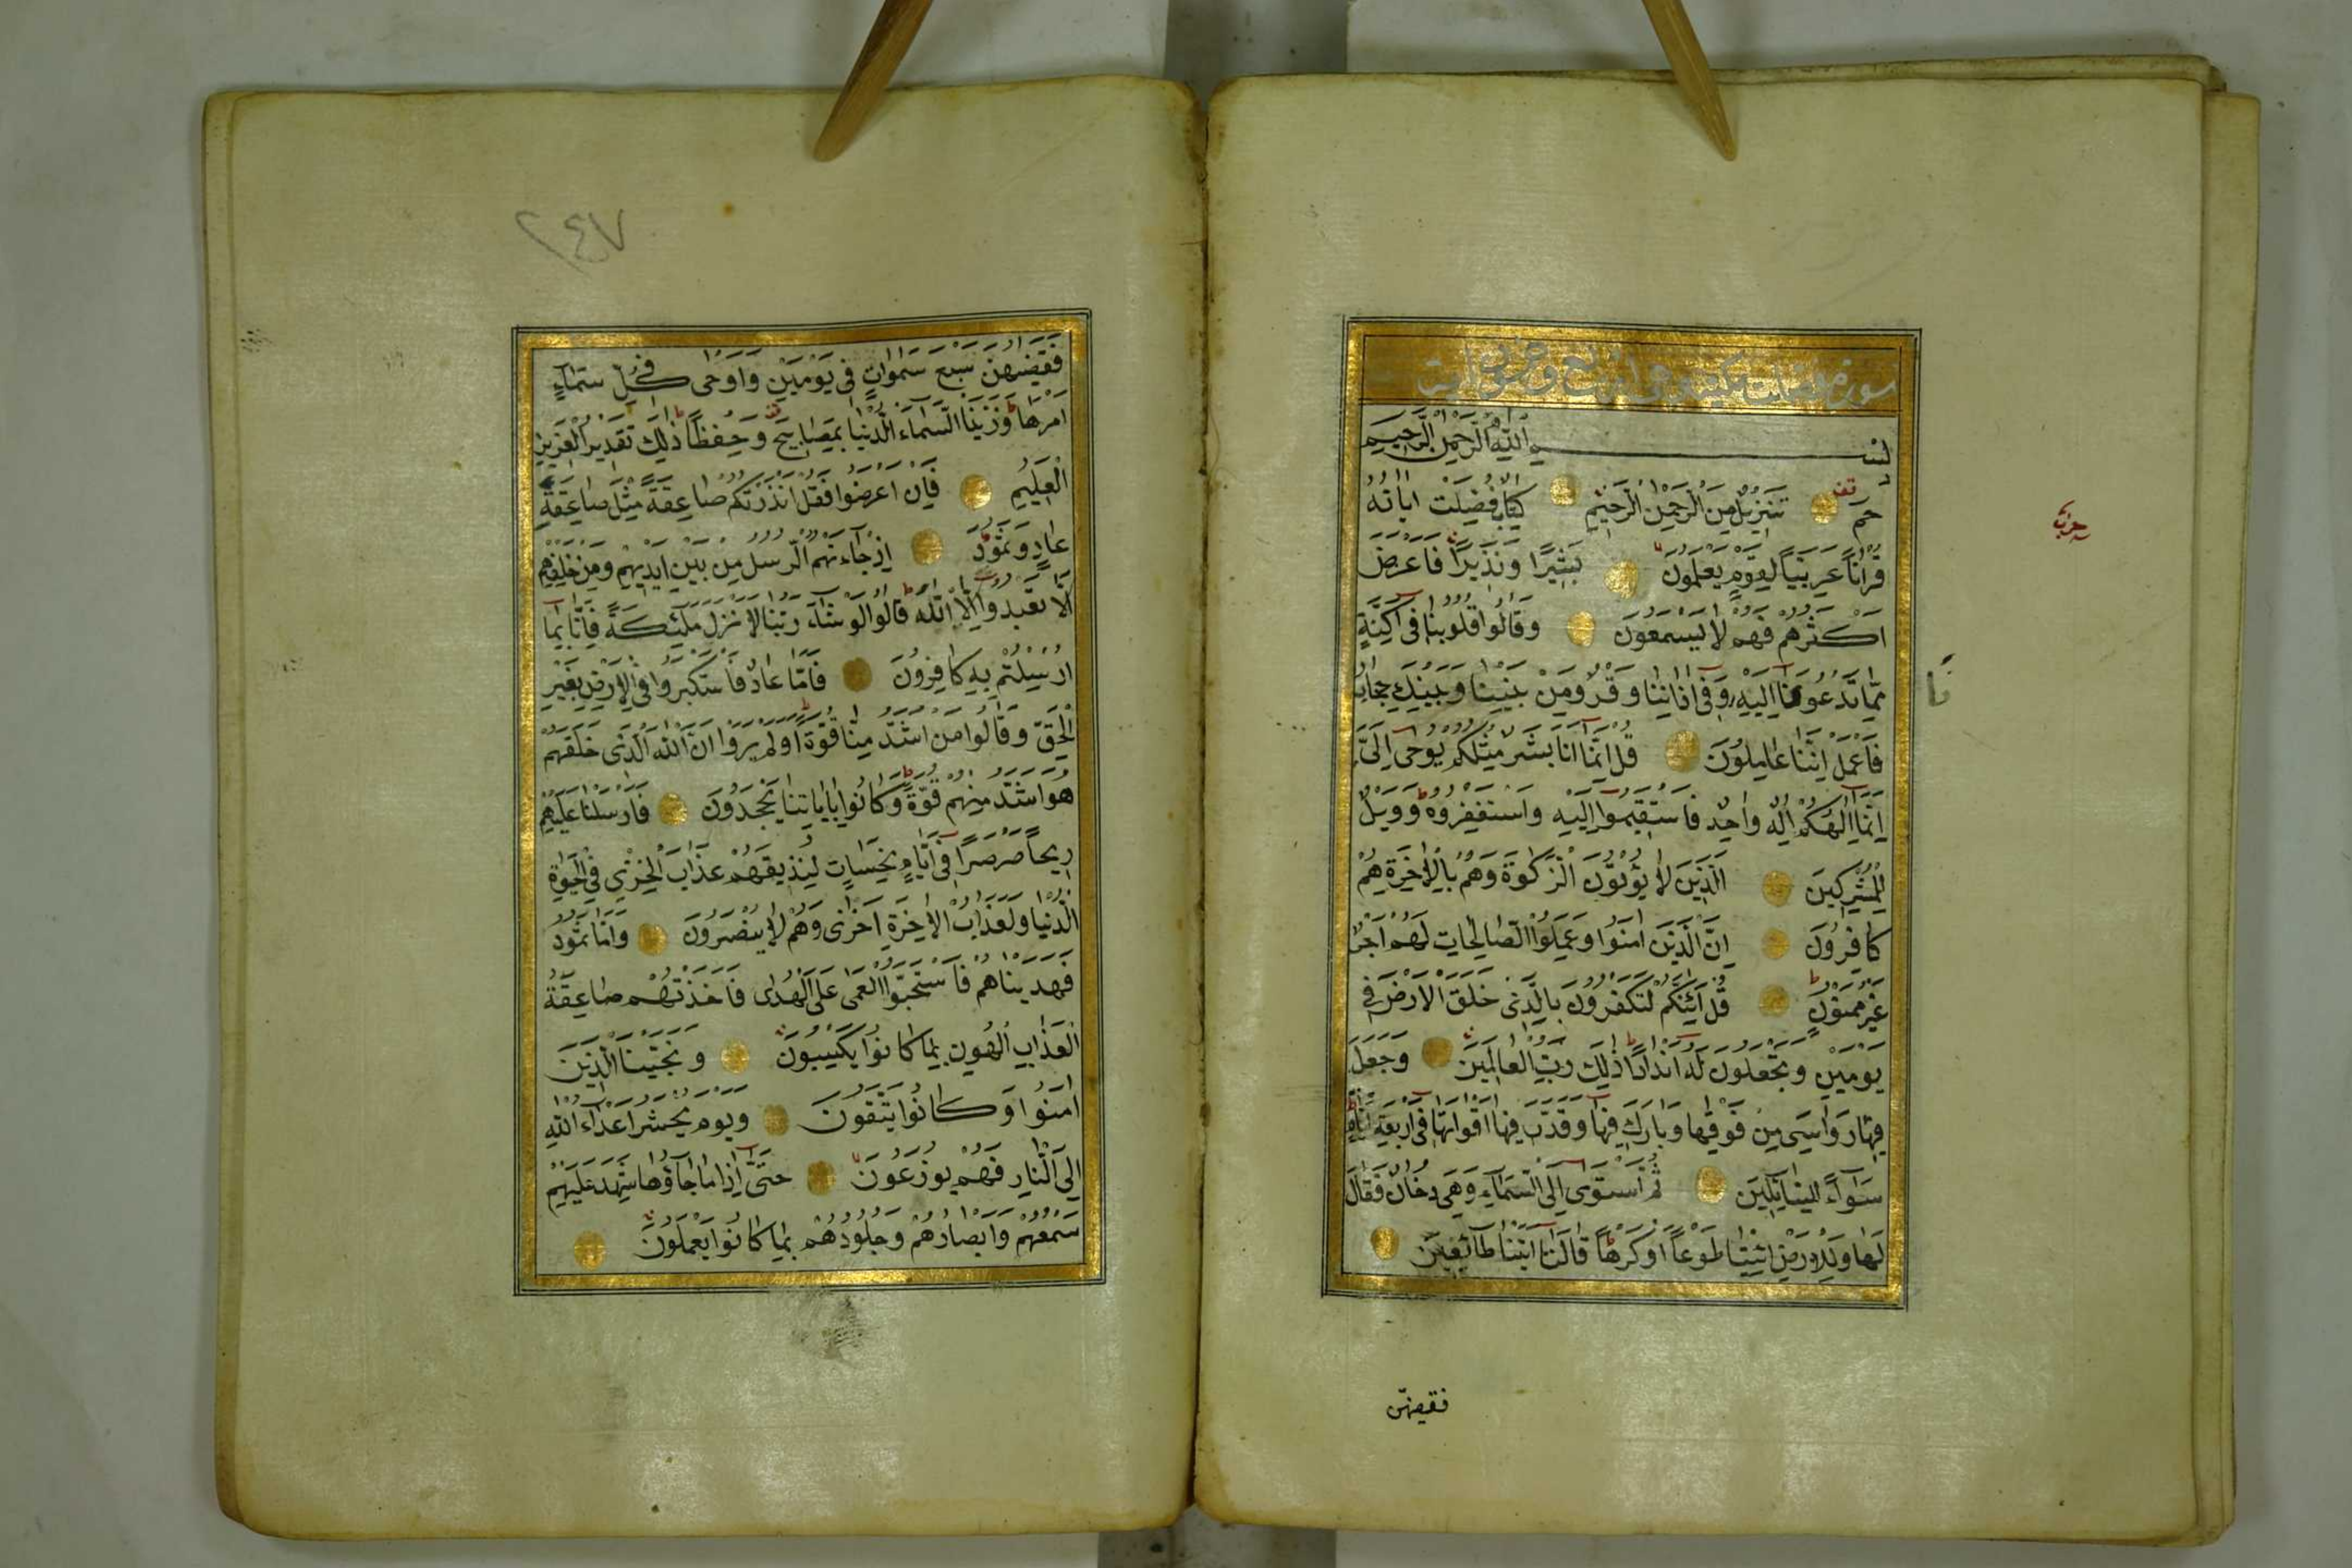 سورة فصلت مكية وهي اربع وخمسون اية
بسم الله الرحمن الرحيم
حم تنزيل من الرحمن الرحيم كتاب فصلت اياته
قرانا عربيا لقوم يعلمون بشيرا ونذيرا فاعرض
اكثرهم فهم لا يسمعون وقالوا قلوبنا في اكنة
مما تدعونا اليه وفي اذاننا وقر ومن بيننا وبينك حجاب
فاعمل اننا عاملون قل انما انا بشر مثلكم يوحى الي
انما الهكم اله واحد فاستقيموا اليه واستغفروه وويل
للمشركين الذين لا يؤتون الزكوة وهم بالاخرة هم
كافرون ان الذين امنوا وعملوا الصالحات لهم اجر
غير ممنون قل ائنكم لتكفرون بالذي خلق الارض في
يومين وتجعلون له اندادا ذلك رب العالمين وجعل
فيها رواسي من فوقها وبارك فيها وقدر فيها اقواتها في اربعة ايام
سواء للسائلين ثم استوى الى السماء وهي دخان فقال
لها وللارض ائتيا طوعا او كرها قالتا اتينا طائعين
فقضيهن
حزب
نا
٢٤٧
فقضيهن سبع سموات في يومين واوحى في كل سماء
امرها وزينا السماء الدنيا بمصابيح وحفظا ذلك تقدير العزيز
العليم فان اعرضوا فقل انذرتكم صاعقة مثل صاعقة
عاد وثمود اذ جاءتهم الرسل من بين ايديهم ومن خلفهم
الا تعبدوا الا الله قالوا لو شاء ربنا لانزل ملئكة فانا بما
ارسلتم به كافرون فاما عاد فاستكبروا في الارض بغير
الحق وقالوا من اشد منا قوة اولم يروا ان الله الذي خلقهم
هو اشد منهم قوة وكانوا باياتنا يجحدون فارسلنا عليهم
ريحا صرصرا في ايام نحسات لنذيقهم عذاب الخزي في الحيوة
الدنيا ولعذاب الاخرة اخزى وهم لا ينصرون واما ثمود
فهديناهم فاستحبوا العمى على الهدى فاخذتهم صاعقة
العذاب الهون بما كانوا يكسبون ونجينا الذين
امنوا وكانوا يتقون ويوم يحشر اعداء الله
الى النار فهم يوزعون حتى اذا ما جاؤها شهد عليهم
سمعهم وابصارهم وجلودهم بما كانوا يعملون